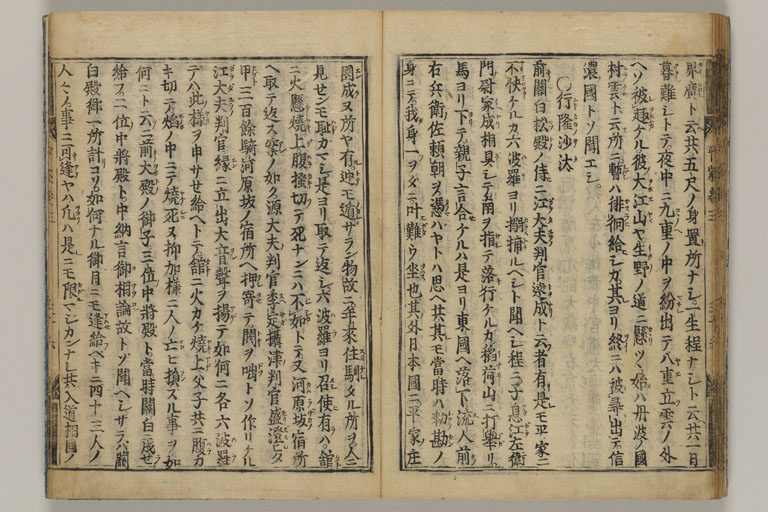 界廣ト云共五尺ノ身置所ナシ一生程ナシト云共一日
暮難シトテ夜中ニ九重ノ中ヲ紛出テ八重立雲ノ外
ヘソ被趣ケル彼大江山ヤ生野ノ道ニ懸ツヽ始ハ丹波ノ國
村雲ト云所ニ暫ハ徘徊給シガ其ヨリ終ニハ被尋出テ信
濃國トソ聞エシ
○行隆沙汰
前關白松殿ノ侍ニ江大夫判官遠成ト云者有是モ平家ニ
不快ケルカ六波羅ヨリ搦捕ルヘシト聞ヘシ程ニ子息江左衛
門尉家成相具シテ南ヲ指テ落行ケルカ稲荷山ニ打擧リ
馬ヨリ下テ親子言合ケルハ是ヨリ東國ヘ落下流人前
右兵衛佐頼朝ヲ憑ハヤトハ思ヘ共其モ當時ハ勅勘ノ
身ニテ我身一ヲタニ叶難ウ坐也其外日本國ニ平家ノ庄
園成又所ヤ有迚モ遁サラン物故ニ年来住馴タル所ヲ人ニ
見センモ耻カマシ是ヨリ取テ返シ六波羅ヨリ召使有ハ舘
ニ火懸焼上腹掻切テ死ナンニハ不如トテ又河原坂ノ宿所
ヘ取テ返ス案ノ如ク源大夫判官季定攝津判官盛澄ヒタ
甲三百餘騎河原坂ノ宿所ヘ押寄テ閧ヲ咄トソ作リケル
江大夫判官縁ニ立出大音聲ヲ揚テ如何ニ各六波羅
テハ此様ヲ申サセ給ヘトテ舘ニ火カケ焼上父子共ニ腹カ
キ切テ焔ノ中ニテ焼死ヌ抑加様ニ人ノ亡ヒ損スル事ヲ如
何ニト云ニ前大殿ノ御子三位中將殿ト當時關白成セ
給フ二位中將殿ト中納言御相論故トソ聞ヘシサラハ關
白殿御一所計コソ如何ナル御目ニモ逢給ヘキニ四十三人ノ
人々ノ事ニ可逢ヤハ凡ハ是ニモ限マシカンナレ共入道相國ノ